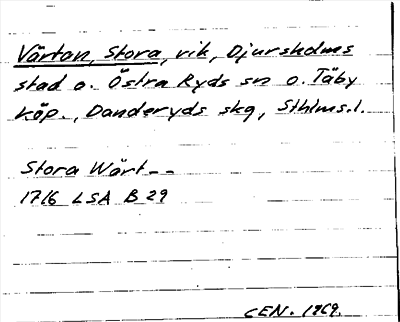 Värtan, Stora, vik, Djursholms
stad o. Östra Ryds sn o. Täby
köp., Danderyds skg, Sthlms.l.
Stora Wärt--
1716 LSA B 29
CEN. 1969.